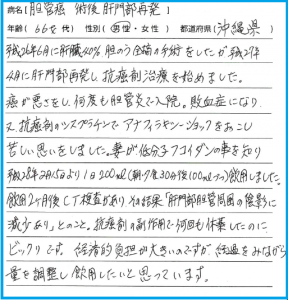 病名【胆管癌 術後 肝門部再発】
年齢(66才代) 性別(男性・女性) 都道府県(沖縄県)
平成26年6月に肝臓40% 胆のう全摘の手術をしたが 平成27年
4月に肝門部再発し 抗癌剤治療を始めました。
癌が悪さをし、何度も胆管炎で入院。敗血症になり
又、抗癌剤のシスプラチンでアナフィラキシーショックをおこし
苦しい思いをしました。妻が低分子フコイダンの事を知り
平成28年2月15日より1日200ml(朝・夕食30分後100mlずつ)飲用しました。
飲用2ヶ月後CT検査があり その結果「肝門部胆管周囲の陰影に
減少あり」とのこと。抗癌剤の副作用で何回も休薬したのに
ビックリです。経済的負担が大きいのですが、経過をみながら
量を調整し飲用したいと思っています。